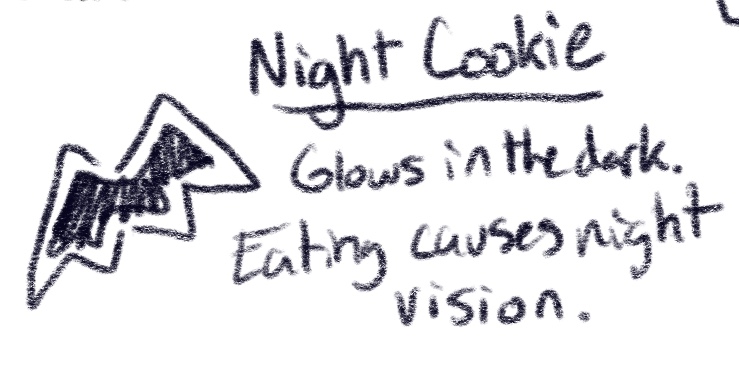 Night Cookie
Glows in the dark.
Eating causes night
vision.